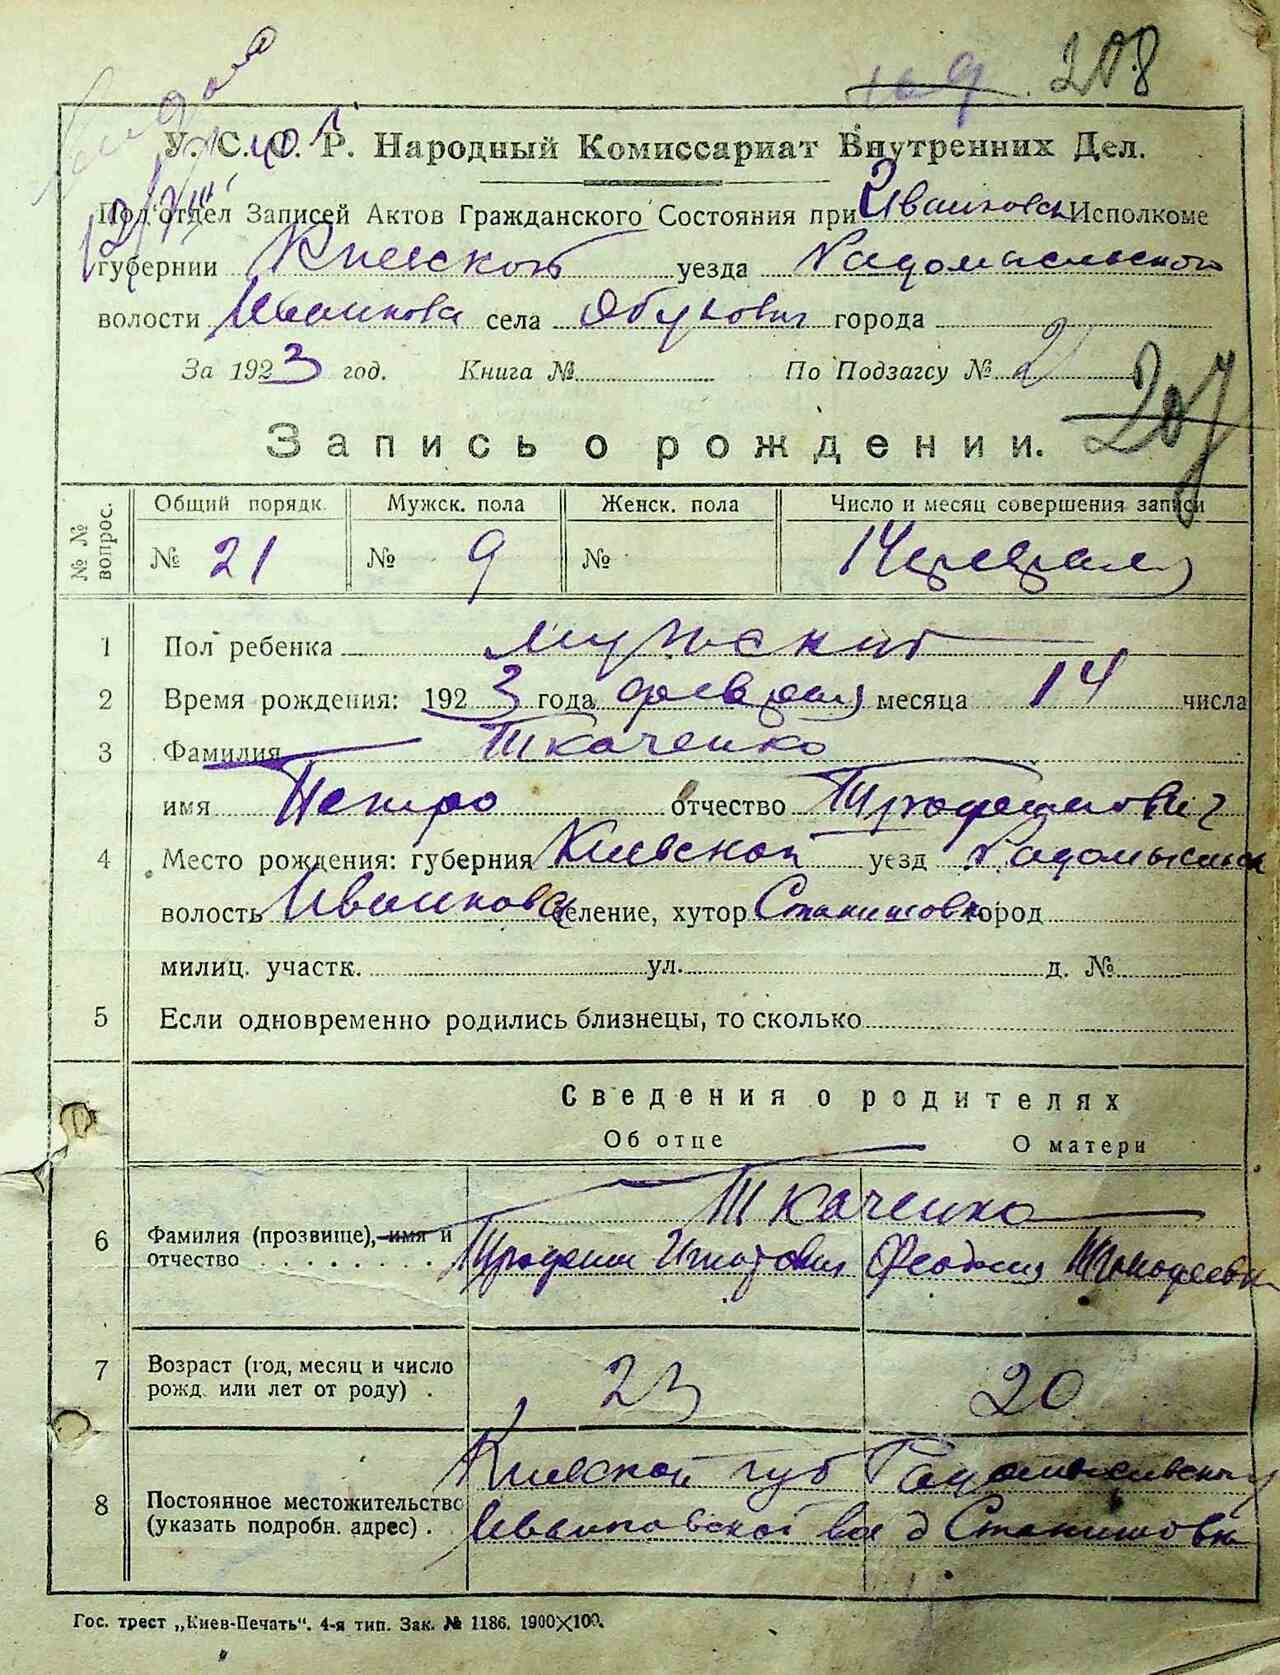 169 208
У. С. С. Р. Народный Комиссариат Внутренних Дел.
Подотдел Записей Актов Гражданского Состояния при Иванковск Исполкоме
губернии Киевской уезда Радомысльского
волости Иванкова села Обуховичи города
За 1923 год. Книга № По Подзагсу № 2
207
Запись о рождении.
№ № вопрос. Общий порядк. Мужск. пола Женск. пола Число и месяц совершения записи
№ 21 № 9 № 14 февраля
1 Пол ребенка мужской
2 Время рождения: 1923 года февраля месяца 14 числа
3 Фамилия Ткаченко
имя Петро отчество Трофимович
4 Место рождения: губерния Киевской уезд Радомысльск
волость Иванкова селение, хутор Станишовка город
милиц. участк. ул. д. №
5 Если одновременно родились близнецы, то сколько
Сведения о родителях
Об отце О матери
Ткаченко
6 Фамилия (прозвище), имя и
отчество Трофим Игнатович Феодосия Тимофеевн
7 Возраст (год, месяц и число
рожд. или лет от роду) . 23 20
Киевской губ Радомысльского
8 Постоянное местожительство
(указать подробн. адрес) . Иванковской вол д Станишовка
Гос. трест „Киев-Печать“. 4-я тип. Зак. № 1186. 1900×100.